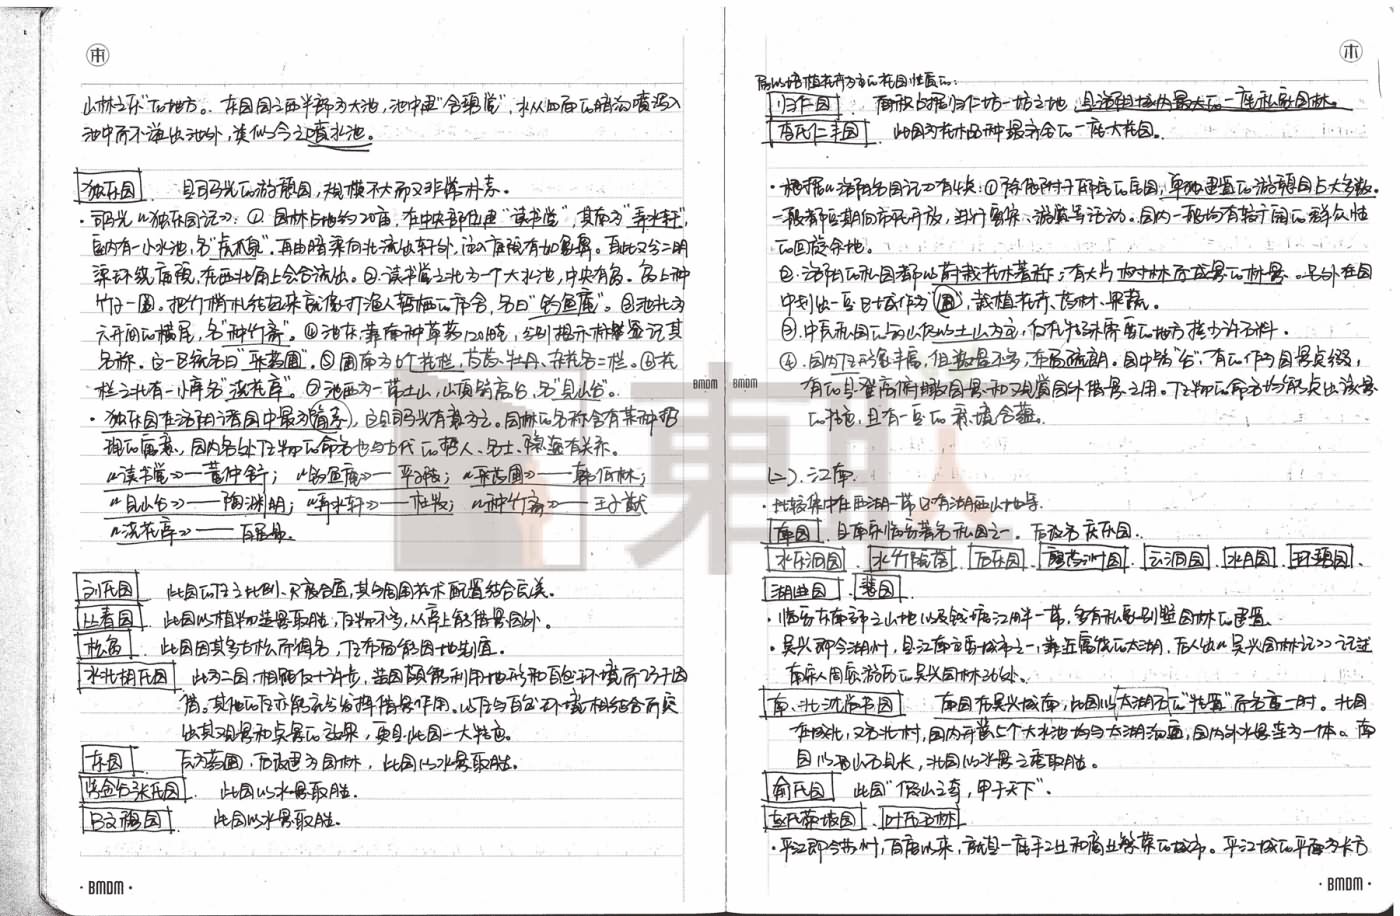 山林之乐"的地方。在园图之西半部为大池,池中建"含碧堂",水从四面的暗沟喷泻入
池中而不溢出池外,类似今之喷水池。
独乐园 是司马光的游憩园,规模不大而又非常朴素。
·司马光《独乐园记》:①园林占地约20亩,在中央部位建"读书堂",其南为"弄水轩",
室内有一小水池,名"虎爪泉",再由暗渠向北流出轩外,注入庭院有如象鼻。自此又分二明
渠环绕庭院,在西北角上会合流出。②读书堂之北为一个大水池,中央有岛。岛上种
竹子一圈。把竹梢扎结起来就像打渔人暂栖的庐舍,名曰"钓鱼庵"。③池北为
六开间的横屋,名"种竹斋"。④池东,靠南种草药120畦,分别揭示标签记其
名称。它一区统名曰"采药圃"。⑤圃南为6个花栏,芍药、牡丹、杂花各二栏。⑥花
栏之北有一小亭名"浇花亭"。⑦池西为一带土山,山顶筑高台,名"见山台"。
·独乐园在洛阳诸园中最为简素,这是司马光有意为之。园林的名称含有某种哲
理的寓意,园内各处厅堂的命名也与古代的哲人、名士、隐逸有关系
《读书堂》——董仲舒;《钓鱼庵》——严子陵;《采药圃》——韩伯林;
《见山台》——陶渊明;《弄水轩》——杜牧;《种竹斋》——王子猷
《浇花亭》——白居易.
刘氏园 此园的厅之比例、尺度合宜,其与周围花木配置结合完美。
丛春园 此园以植物造景取胜,厅物不多,从亭上能借景园外。
松岛 此园因其多古松而得名,厅布局能因地制宜。
水北胡氏园 此为二园,相距仅十许步,造园颇能利用地形和自然环境而巧于因
借。其他的厅亦能充分发挥借景作用。以厅与自然环境相结合而突
出其观景和点景的效果,更是此园一大特色。
东园 原为药圃,后改建为园林,此园以水景取胜。
紫金台张氏园 此园以水景取胜.
吕文穆园 此园以水景取胜.
·BMDM·
属以培植花卉为主的花园性质的:
归仁园 面积占据归仁坊一坊之地,是洛阳城内最大的一座私家园林。
李氏仁丰园 此园为花木品种最齐全的一座大花园。
·根据《洛阳名园记》有4点:①除依附于邸宅的宅园,单独建置的游憩园占大多数。
一般都定期向市民开放,进行宴集、游赏等活动。园内一般均有较广阔的群众性
的回旋余地。
②洛阳的私园都以莳栽花木著称,有大片树林而成景的林景。另外在园
中划出一区区域作为"圃",栽植花卉、药材、果蔬。
③中原私园的筑山仍以土山为主,仅在特殊需要的地方掺少许石料.
④园内厅形象丰富,但数量不多,布局疏朗。园中筑"台",有的作为园景点缀,
有的是登高俯瞰园景和观赏园外借景之用。厅物的命名均能点出该景
的特色,且有一定的意境含蕴。
(二).江南.
·比较集中在西湖一带以有湖西山地等.
南园 是南宋临安著名私园之一。后改名庆乐园.
水乐洞园、水竹院落、后乐园、廖药洲园、云洞园、水月园、环碧园、
湖曲园、裴园
·临安东南部之山地以及钱塘江畔一带,多有私家别墅园林的建置.
·吴兴即今湖州,是江南主要城市之一,靠近富饶的太湖,后人出《吴兴园林记》记述
南宋人周密游历的吴兴园林36处。
南、北沈尚书园 南园在吴兴城南,此园以太湖石的"特置"而名重一时。北园
在城北,又名北村,园内开凿5个大水池均与太湖沟通,园内外水景连为一体。南
园以叠山石见长,北园以水景之秀取胜。
俞氏园 此园"假山之奇,甲于天下".
赵氏菊坡园、叶氏石林
·平江即今苏州,自唐以来,就是一座手工业和商业繁荣的城市。平江城的平面为长方
·BMDM·
BMDM
BMDM
東